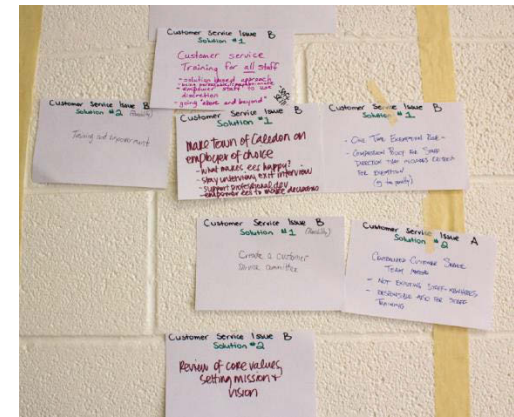 Customer Service Issue B
Solution #1
Customer service
Training for all staff
- solution based approach
- empower staff to use
discretion
- going "above and beyond"
Customer Service Issue B
Solution #2
Training and empowerment
Customer Service Issue B
Solution #1
Make Town of Caledon an
employer of choice
- what makes ees happy?
- stay interview, exit interview
- support professional dev
- empower ees to make decisions
Customer Service Issue B
Solution #1
- One Time Exemption Rule -
- Companion Policy for Staff
Direction that includes criteria
for exemption
Customer Service Issue B
Solution #1
Create a customer
service committee
Customer Service Issue A
Solution #2
Customer Service
Team
- Not existing staff
- responsible also for staff
training
Customer Service Issue B
Solution #2
Review of core values,
setting mission +
vision